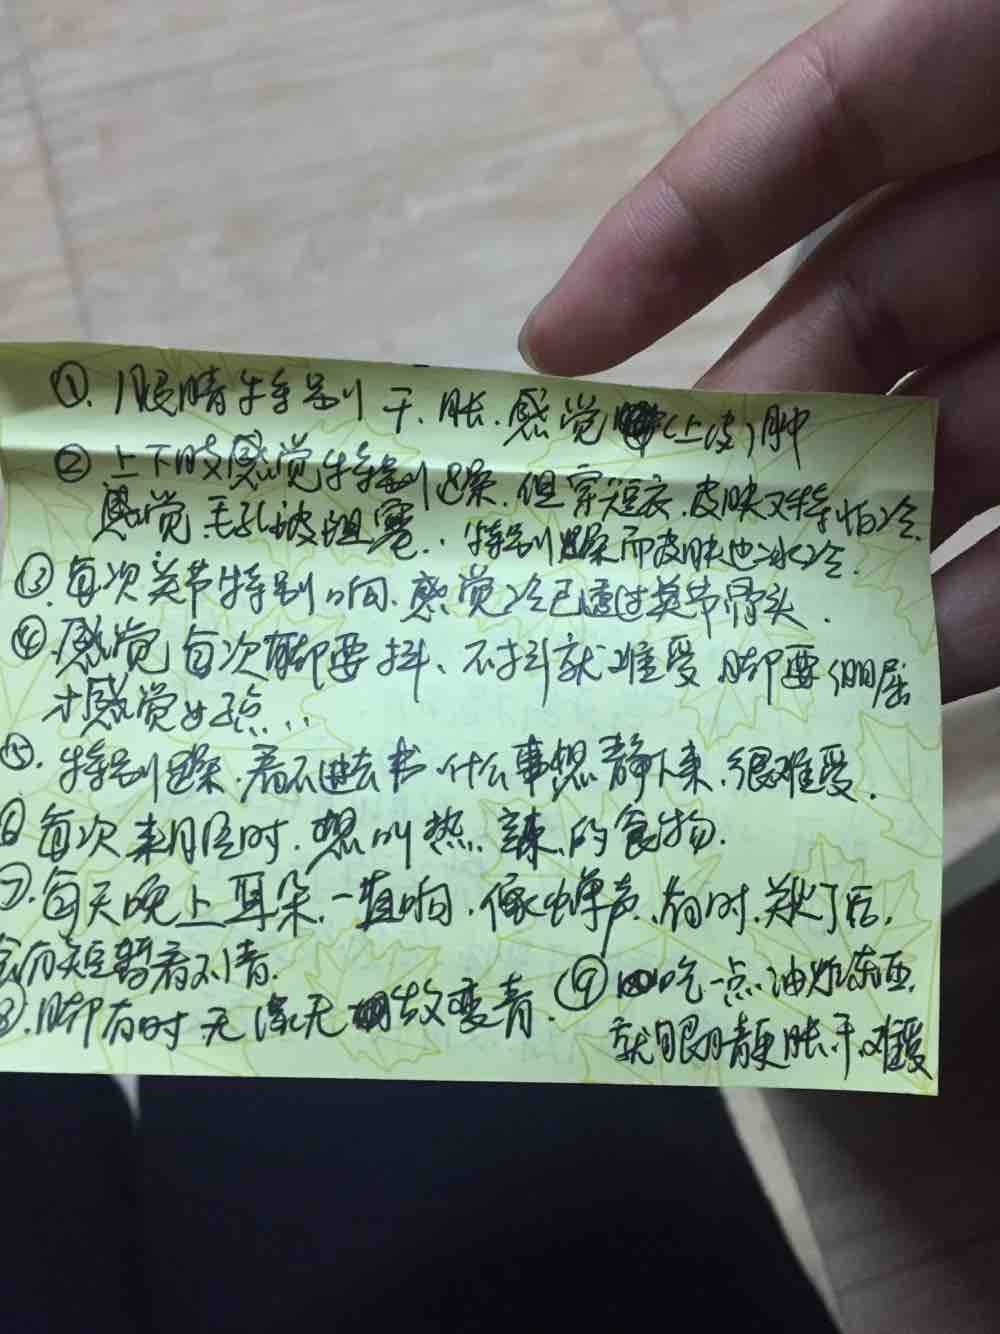 ①.眼睛特别干、胀.感觉(上皮)肿
②上下肢感觉特别躁.但穿短衣.皮肤又特怕冷.
感觉毛孔被阻塞..特别躁而皮肤也冰冷.
③.每次关节特别响.感觉冷已透过关节骨头.
④.感觉每次脚要抖、不抖就难受 脚要
才感觉好点...
⑤.特别躁.看不进去书.什么事想静下来.很难受.
⑥每次来月经时.想叫热.辣.的食物.
⑦.每天晚上耳朵.一直响.像蝉声.有时.关灯后.
会有短暂看不清.
⑧.脚有时无缘无故变青.
⑨吃一点油炸东西.
就眼睛更胀.干.难受